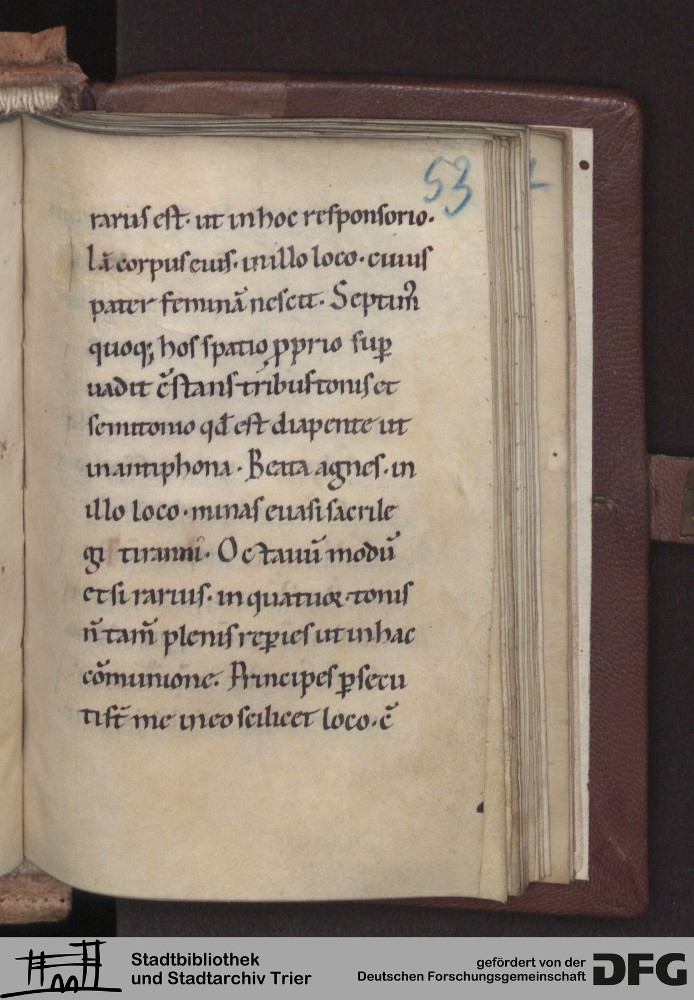 53
rarus est· ut in hoc responsorio·
Lā corpus eius· in illo loco· cuius
pater feminā nescit· Septim᷒
quoq; hos spatio pprio sup̄
uadit c̄stans tribus tonis et
semitonio qđ est diapente ut
in antiphona· Beata agnes· in
illo loco· minas euasi sacrile
gi tiranni· Octauū modū
etsi rarius· in quatuor tonis
ñ tam̄ plenis rep̄ies ut in hac
cōmunione· Principes ꝑsecu
ti st̄ me in eo scilicet loco· c̄
Stadtbibliothek
und Stadtarchiv Trier
gefördert von der
Deutschen Forschungsgemeinschaft
DFG